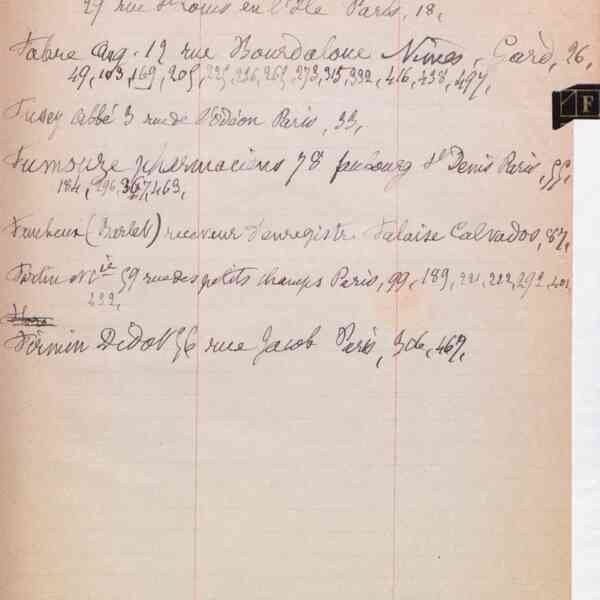 29 rue St Louis en l'Ile Paris, 18,
Fabre Aug. 12 rue Bourdaloue Nîmes, Gard, 26,
49, 103, 169, 205, 225, 236, 265, 273, 315, 332, 416, 438, 497,
Fusey abbé 3 rue de l'Odéon Paris, 33,
Fumouze pharmaciens 78 faubourg St Denis Paris, 55,
184, 296, 367, 463,
(Barlet) receveur d'enregistr. Falaise Calvados, 87,
Fortin Mie 59 rue des petits champs Paris, 99, 189, 221, 222, 292, 401,
432,
Firmin Didot 56 rue Jacob Paris, 306, 467,
F